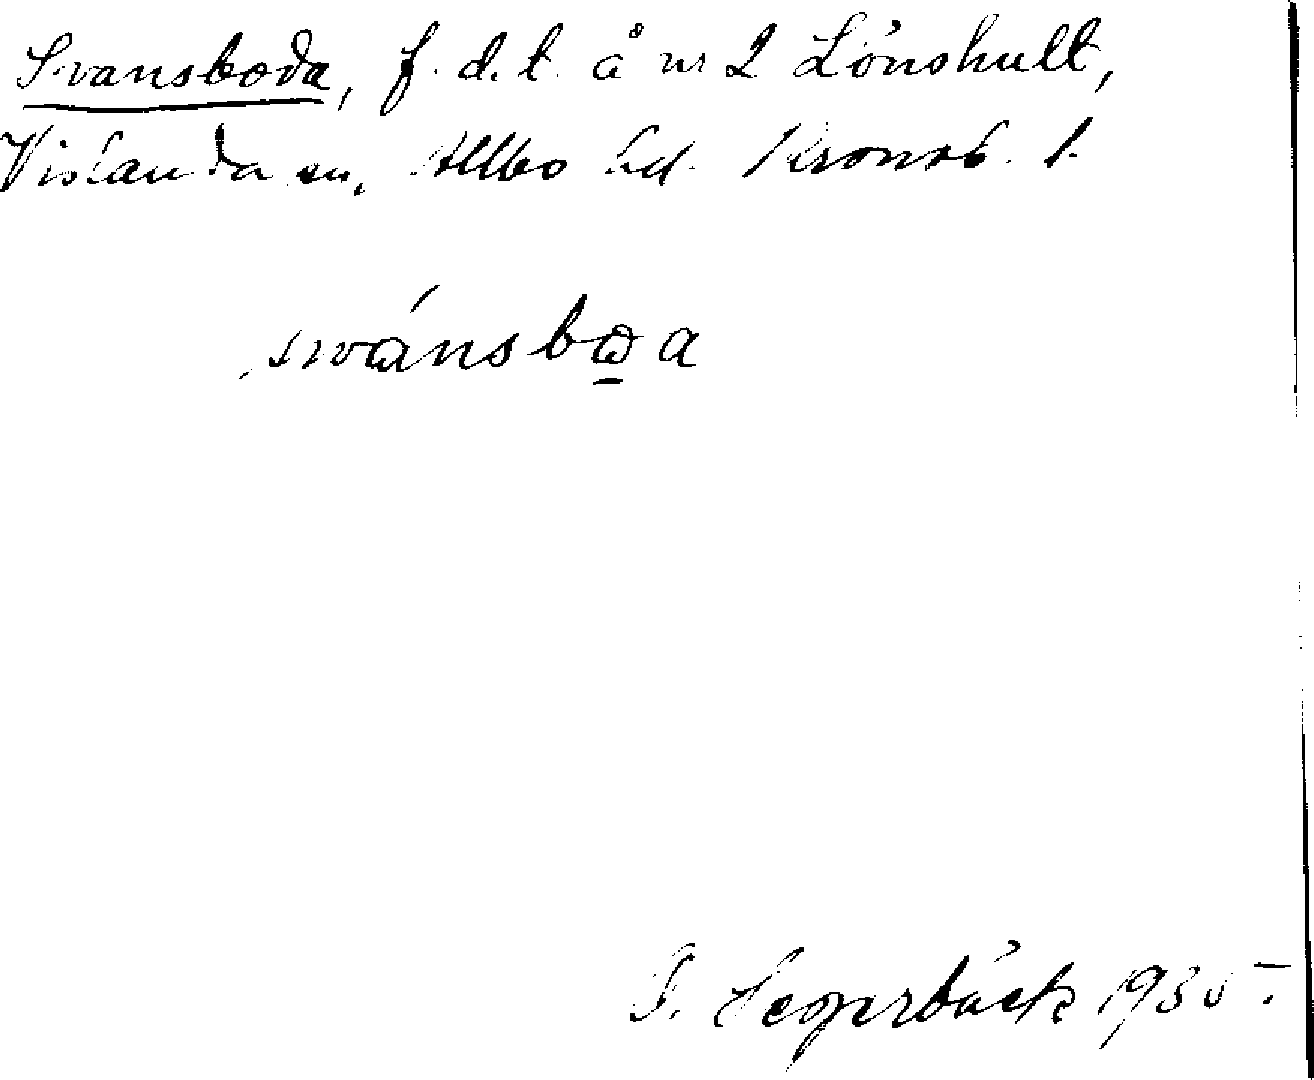 Svansboda, f. d. t. å nr 2 Lönshult,
Vislanda sn, Allbo hd. Kronob. l.
swánsbωa
S. Segerbäck 1935.